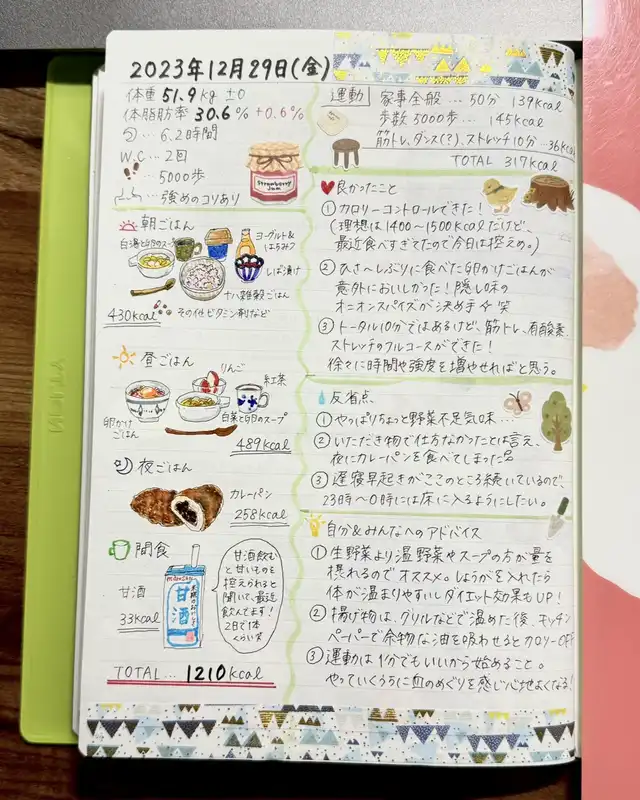 2023年12月29日(金)
体重 51.9kg ±0
体脂肪率 30.6% +0.6%
… 6.2時間
W.C … 2回
… 5000歩
… 強めのコリあり
Strawberry
Jam
朝ごはん
白湯と卵のスープ
ヨーグルト&
はちみつ
しば漬け
十八雑穀ごはん
430kcal
その他ビタミン剤など
昼ごはん
りんご
紅茶
卵かけ
ごはん
白菜と卵のスープ
489kcal
夜ごはん
カレーパン
258kcal
間食
甘酒
33kcal
甘酒
甘酒飲む
と甘いものを
控えられると
聞いて、最近
飲んでます!
2日で1本
くらい笑
TOTAL … 1210kcal
運動 家事全般 … 50分 139kcal
歩数 5000歩 … 145kcal
筋トレ、ダンス(?)、ストレッチ10分 … 36kcal
TOTAL 317kcal
良かったこと
① カロリーコントロールできた!
(理想は1400〜1500kcalだけど、
最近食べすぎてたので今日は控えめ。)
② ひさ〜しぶりに食べた卵かけごはんが
意外においしかった! 隠し味の
オニオンスパイスが決め手 笑
③ トータル10分ではあるけど、筋トレ、有酸素
ストレッチのフルコースができた!
徐々に時間や強度を増やせればと思う。
反省点、
① やっぱりちょっと野菜不足気味…
② いただき物で仕方なかったとは言え、
夜にカレーパンを食べてしまった
③ 遅寝早起きがここのところ続いているので、
23時〜0時には床に入るようにしたい。
自分&みんなへのアドバイス
① 生野菜より温野菜やスープの方が量を
摂れるのでオススメ。しょうがを入れたら
体が温まりやすいしダイエット効果もUP!
② 揚げ物は、グリルなどで温めた後、キッチン
ペーパーで余物な油を吸わせるとカロリーOFF
③ 運動は1分でもいいから始めること。
やっていくうちに血のめぐりを感じ心地よくなる!